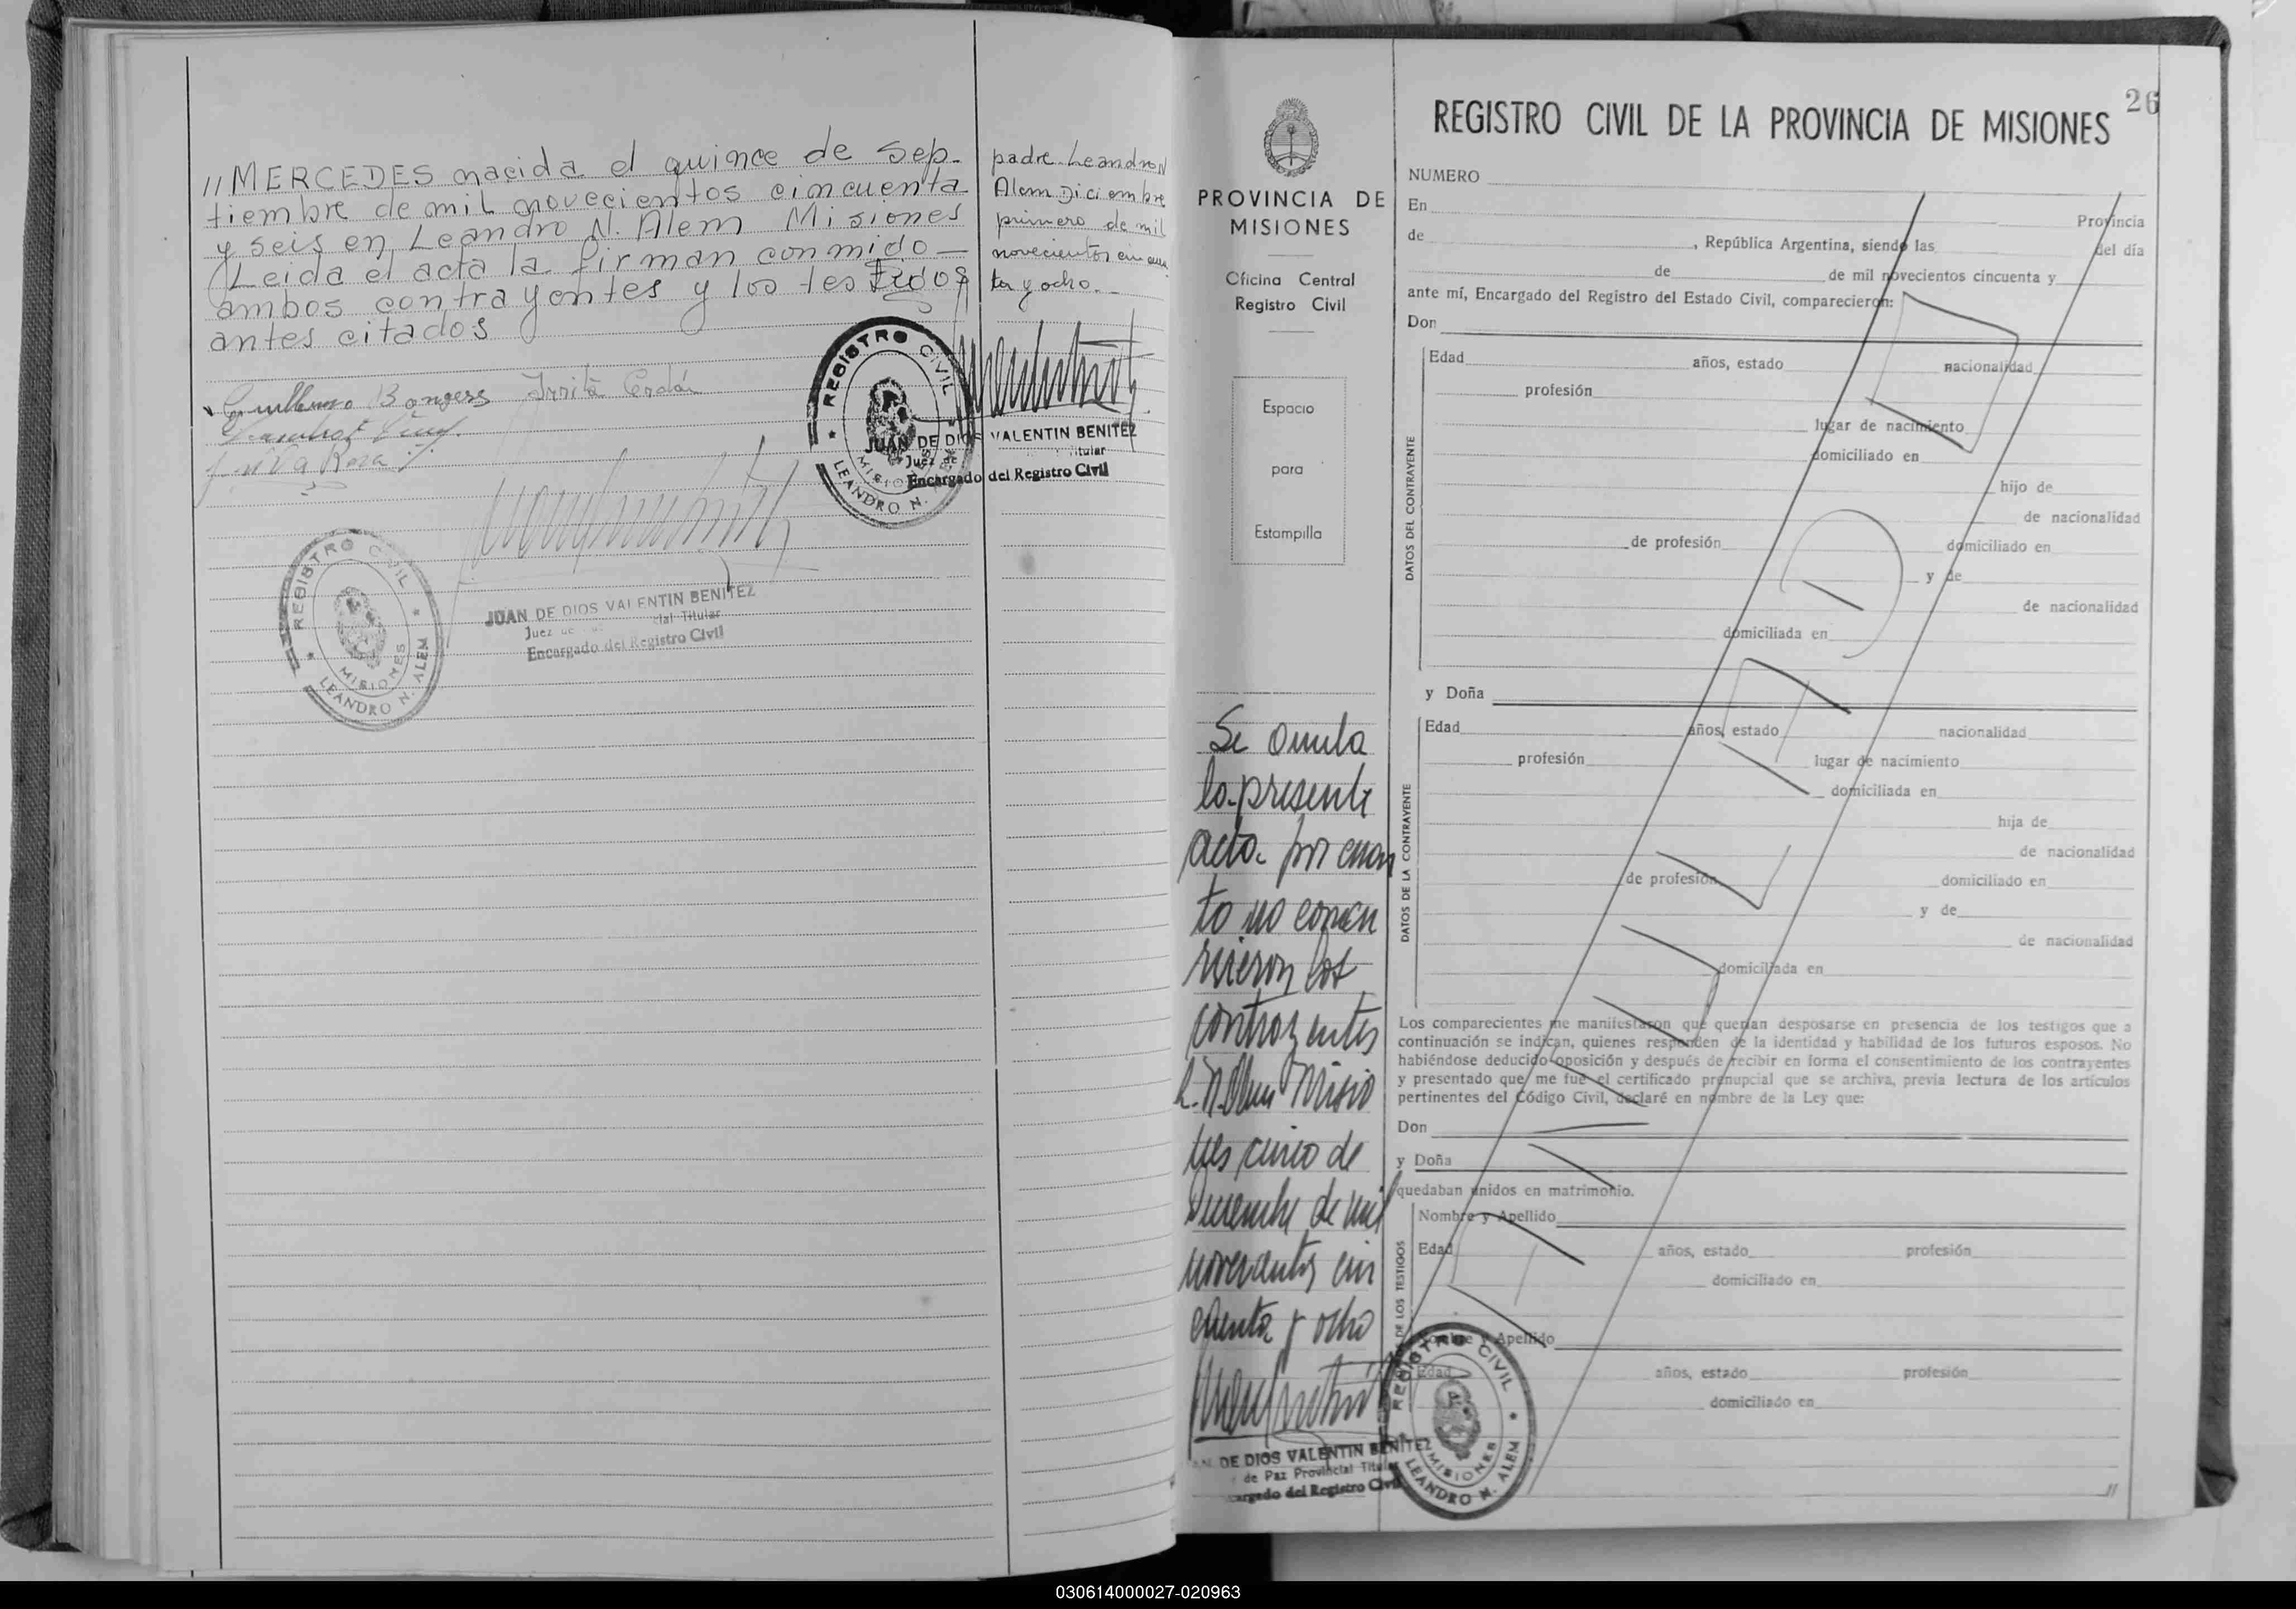 // MERCEDES nacida el quince de Sep-
tiembre de mil novecientos cincuenta
y seis en Leandro N. Alem Misiones
Leida el acta la firman conmigo
ambos contrayentes y los testigos
antes citados
Guillermo Bongers
padre. Leandro N
Alem Diciembre
primero de mil
novecientos cincuen
ta y ocho.
REGISTRO CIVIL
MISIONES
LEANDRO N. ALEM
JUAN DE DIOS VALENTIN BENITEZ
Juez de Titular
Encargado del Registro Civil
REGISTRO CIVIL
MISIONES
LEANDRO N. ALEM
JUAN DE DIOS VALENTIN BENITEZ
Juez de cial Titular
Encargado del Registro Civil
PROVINCIA DE
MISIONES
Oficina Central
Registro Civil
Espacio
para
Estampilla
Se anula
la presente
acta por cuan
to no concu
rrieron los
contrayentes
L. N. Alem Misio
nes cinco de
Diciembre de mil
novecientos cin
cuenta y ocho
DE DIOS VALENTIN BENITEZ
de Paz Provincial Titular
argado del Registro Civil
REGISTRO CIVIL
MISIONES
LEANDRO N. ALEM
26
REGISTRO CIVIL DE LA PROVINCIA DE MISIONES
NUMERO
En Provincia
de , República Argentina, siendo las del día
de de mil novecientos cincuenta y
ante mí, Encargado del Registro del Estado Civil, comparecieron:
Don
DATOS DEL CONTRAYENTE
Edad años, estado nacionalidad
profesión
lugar de nacimiento
domiciliado en
hijo de
de nacionalidad
de profesión domiciliado en
y de
de nacionalidad
domiciliada en
y Doña
DATOS DE LA CONTRAYENTE
Edad años, estado nacionalidad
profesión lugar de nacimiento
domiciliada en
hija de
de nacionalidad
de profesión domiciliado en
y de
de nacionalidad
domiciliada en
ANULADO
Los comparecientes me manifestaron que querían desposarse en presencia de los testigos que a
continuación se indican, quienes responden de la identidad y habilidad de los futuros esposos. No
habiéndose deducido oposición y después de recibir en forma el consentimiento de los contrayentes
y presentado que me fué el certificado prenupcial que se archiva, previa lectura de los artículos
pertinentes del Código Civil, declaré en nombre de la Ley que:
Don
y Doña
quedaban unidos en matrimonio.
DE LOS TESTIGOS
Nombre y Apellido
Edad años, estado profesión
domiciliado en
Nombre y Apellido
Edad años, estado profesión
domiciliado en
//
030614000027-020963